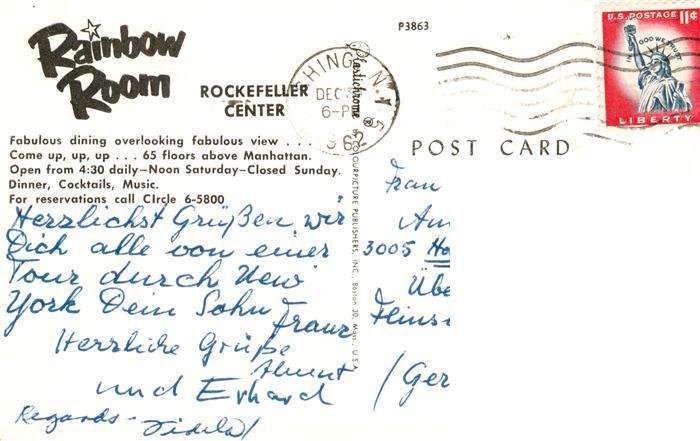 Rainbow
Room
ROCKEFELLER
CENTER
Fabulous dining overlooking fabulous view . . .
Come up, up, up . . . 65 floors above Manhattan.
Open from 4:30 daily—Noon Saturday—Closed Sunday.
Dinner, Cocktails, Music.
For reservations call CIrcle 6-5800
Herzlichst Grüßen wir
Dich alle von einer
Tour durch New
York Dein Sohn
Franz
Herzliche Grüße
und Erhard
Regards-
Plastichrome®
BY COLOURPICTURE PUBLISHERS, INC., Boston 30, Mass., U.S.A.
P3863
HING N.Y.
DEC 3
6-P
U.S. POSTAGE 11¢
IN GOD WE TRUST
LIBERTY
POST CARD
Frau
Am
3005 He
Übe
Flins
(Ger